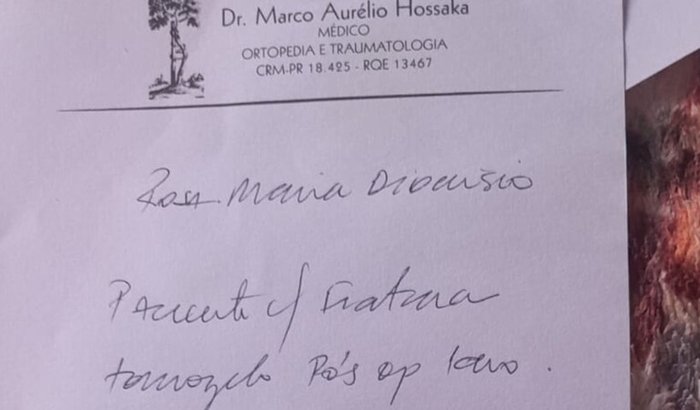 Dr. Marco Aurélio Hossaka
MÉDICO
ORTOPEDIA E TRAUMATOLOGIA
CRM-PR 18.425 - RQE 13467
Rosa Maria Dionisio
Paciente c/ Fratura
tornozelo Pós op